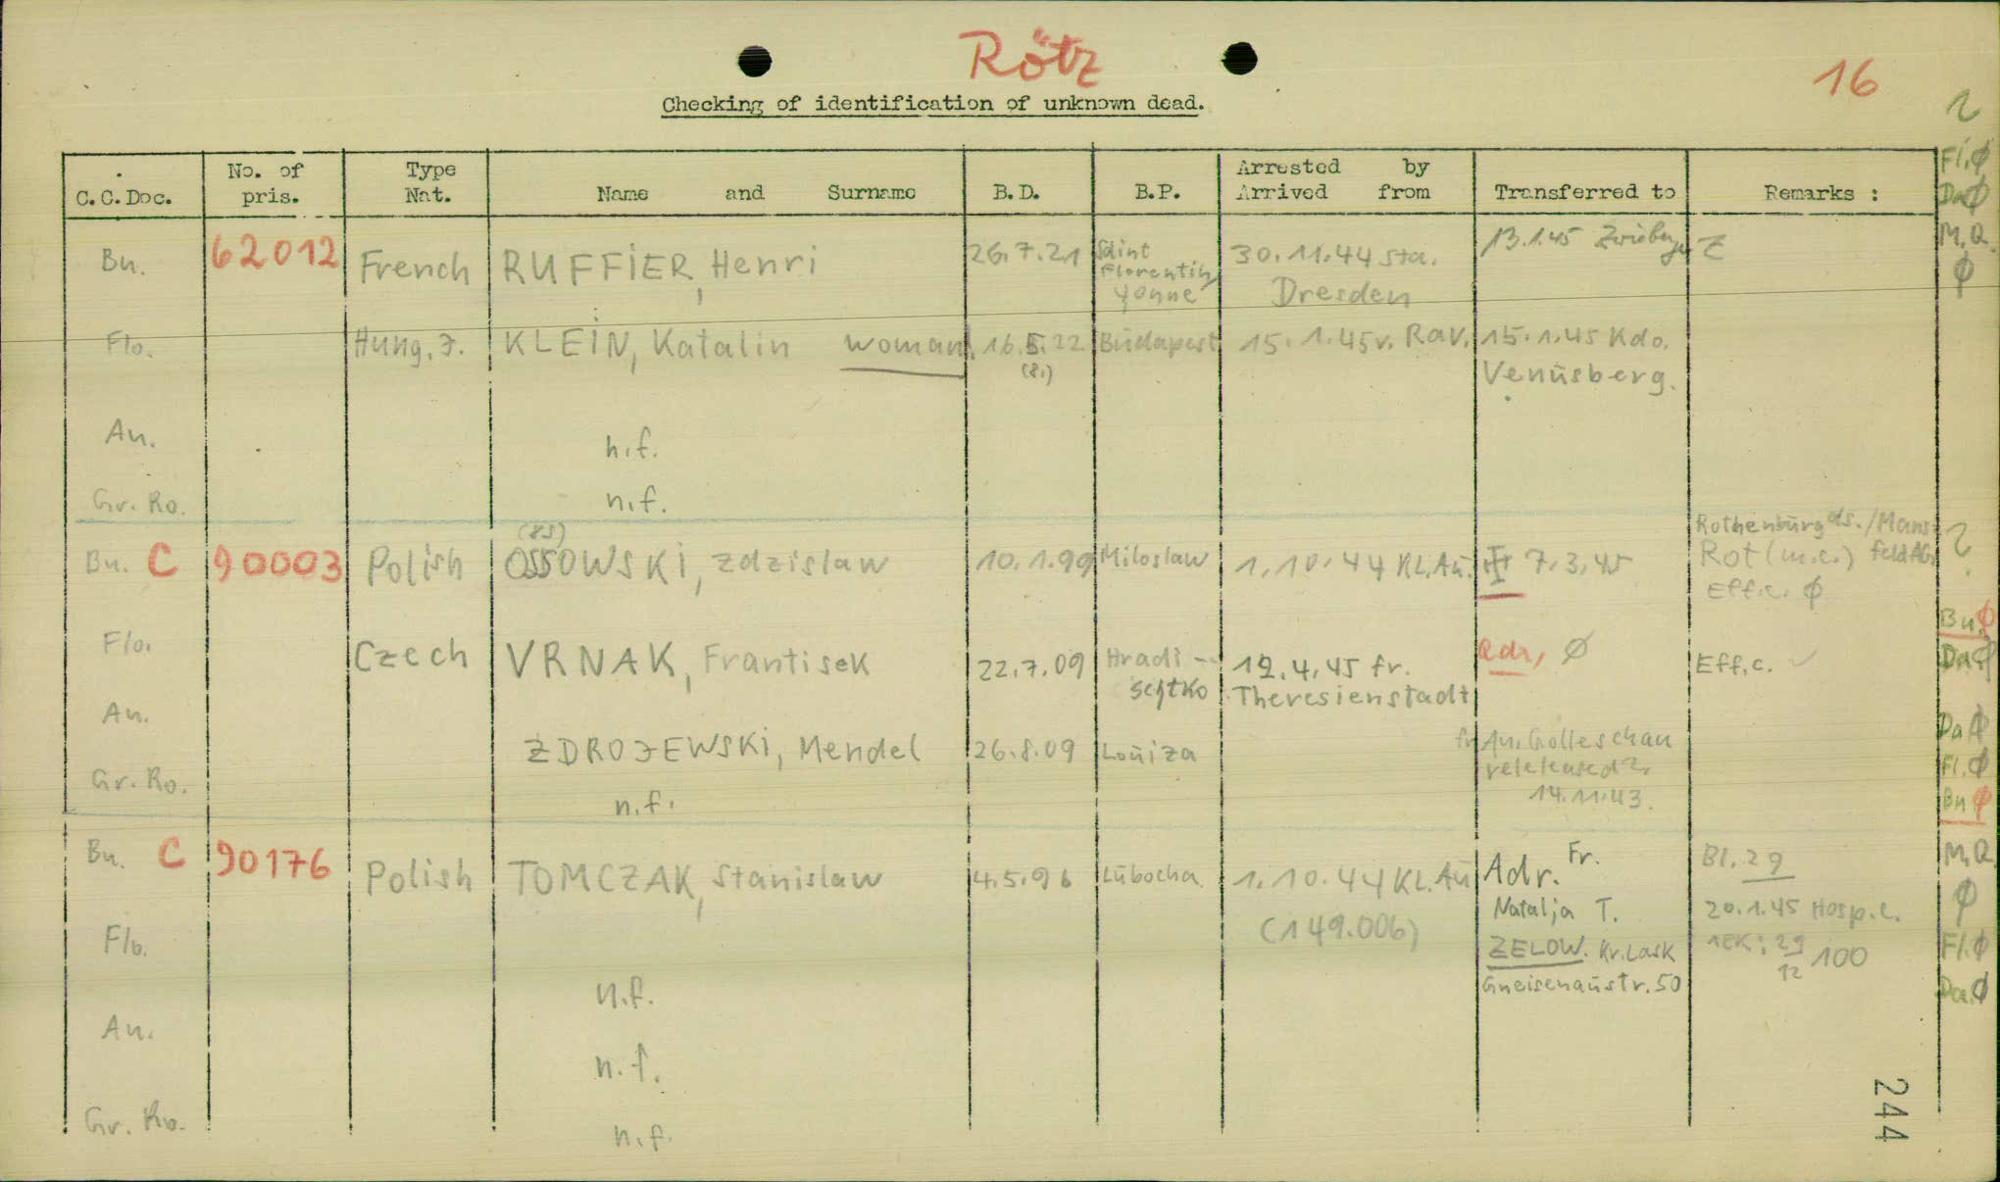 Rötz
16
Checking of identification of unknown dead.
C.C.Doc. No. of pris. Type Nat. Name and Surname B.D. B.P. Arrested by Arrived from Transferred to Remarks :
Bu. 62012 French RUFFIER, Henri 26.7.21 Saint Florentin, Yonne 30.11.44 Sta. Dresden 13.1.45 Z
Flo. Hung. J. KLEIN, Katalin woman 16.5.22 (8.) Budapest 15.1.45 v. Rav. 15.1.45 Kdo. Venusberg.
An. n.f.
Gr. Ro. n.f.
Bu. C 90003 Polish (ss) OSSOWSKI, Zdzislaw 10.1.99 Miloslaw 1.10.44 KL.Au. 7.3.45 Rothenburg ds./Mansfeld AG. Rot (m.c.) Eff.c. Ø
Flo. Czech VRNAK, Frantisek 22.7.09 Hradischtko 19.4.45 fr. Theresienstadt Adr, Ø Eff.c. ✓
An. ZDROJEWSKI, Mendel 26.8.09 Louiza fr. Au. Golleschau 14.11.43.
Gr. Ro. n.f.
Bu. C 90176 Polish TOMCZAK, Stanislaw 4.5.96 Lubocha 1.10.44 KL.Au (149.006) Adr. Fr. Natalja T. ZELOW. Kr. Lask Gneisenaustr. 50 Bl. 29 20.1.45 Hosp.c. 1EK: 29/12 100
Flo. n.f.
An. n.f.
Gr. Ro. n.f.
Fl. Ø
Da Ø
M.Q.
Ø
Bu. Ø
Da Ø
Da Ø
Fl. Ø
Bu Ø
M.Q.
Ø
Fl. Ø
Da. Ø
244